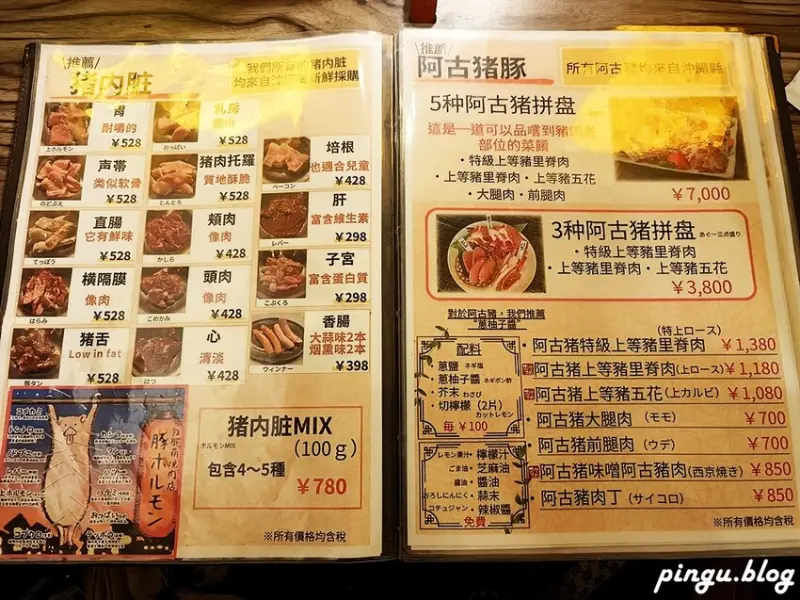 推薦
猪内脏
我們所有的猪内脏
均來自沖繩縣新鮮採購
胃
耐嚼的
¥528
上ホルモン
乳房
¥528
おっぱい
声帯
类似软骨
¥528
のどぶえ
猪肉托羅
質地酥脆
¥528
とんとろ
培根
也適合兒童
¥428
ベーコン
直腸
它有鮮味
¥528
てっぽう
頬肉
像肉
¥428
かしら
肝
富含維生素
¥298
レバー
横隔膜
像肉
¥528
はらみ
頭肉
像肉
¥428
こめかみ
子宮
富含蛋白質
¥298
こぶくろ
猪舌
Low in fat
¥528
豚タン
心
清淡
¥428
はつ
香腸
大蒜味2本
烟熏味2本
¥398
ウィンナー
豚ホルモン
コメカミ
カシラ
トントロ
レバー
ハラミ
上ホルモン
おっぱい
コブクロ
テッポウ
猪内脏MIX
ホルモンMIX
(100g)
包含4～5種
¥780
※所有價格均含稅
推薦
阿古猪豚
所有阿古豬均來自沖繩縣
5种阿古猪拼盘
這是一道可以品嚐到豬
部位的菜餚
・特級上等豬里脊肉
・上等豬里脊肉・上等豬五花
・大腿肉・前腿肉
¥7,000
3种阿古猪拼盘
あぐー三点盛り
・特級上等豬里脊肉
・上等豬里脊肉・上等豬五花
¥3,800
對於阿古豬，我們推薦
"蔥柚子醬"
配料
・蔥鹽 ネギ塩
・蔥柚子醬 ネギポン酢
・芥末 わさび
・切檸檬（2片）
カットレモン
毎¥100
レモン果汁・檸檬汁
ごま油・芝麻油
醬油・醬油
おろしにんにく・蒜末
コチュジャン・辣椒醬
免費
(特上ロース)
・阿古猪特級上等豬里脊肉 ¥1,380
・阿古猪上等豬里脊肉(上ロース) ¥1,180
・阿古猪上等豬五花(上カルビ) ¥1,080
・阿古猪大腿肉（モモ） ¥700
・阿古猪前腿肉（ウデ） ¥700
・阿古猪味噌阿古豬肉(西京焼き) ¥850
・阿古豬肉丁（サイコロ） ¥850
※所有價格均含稅
pingu.blog